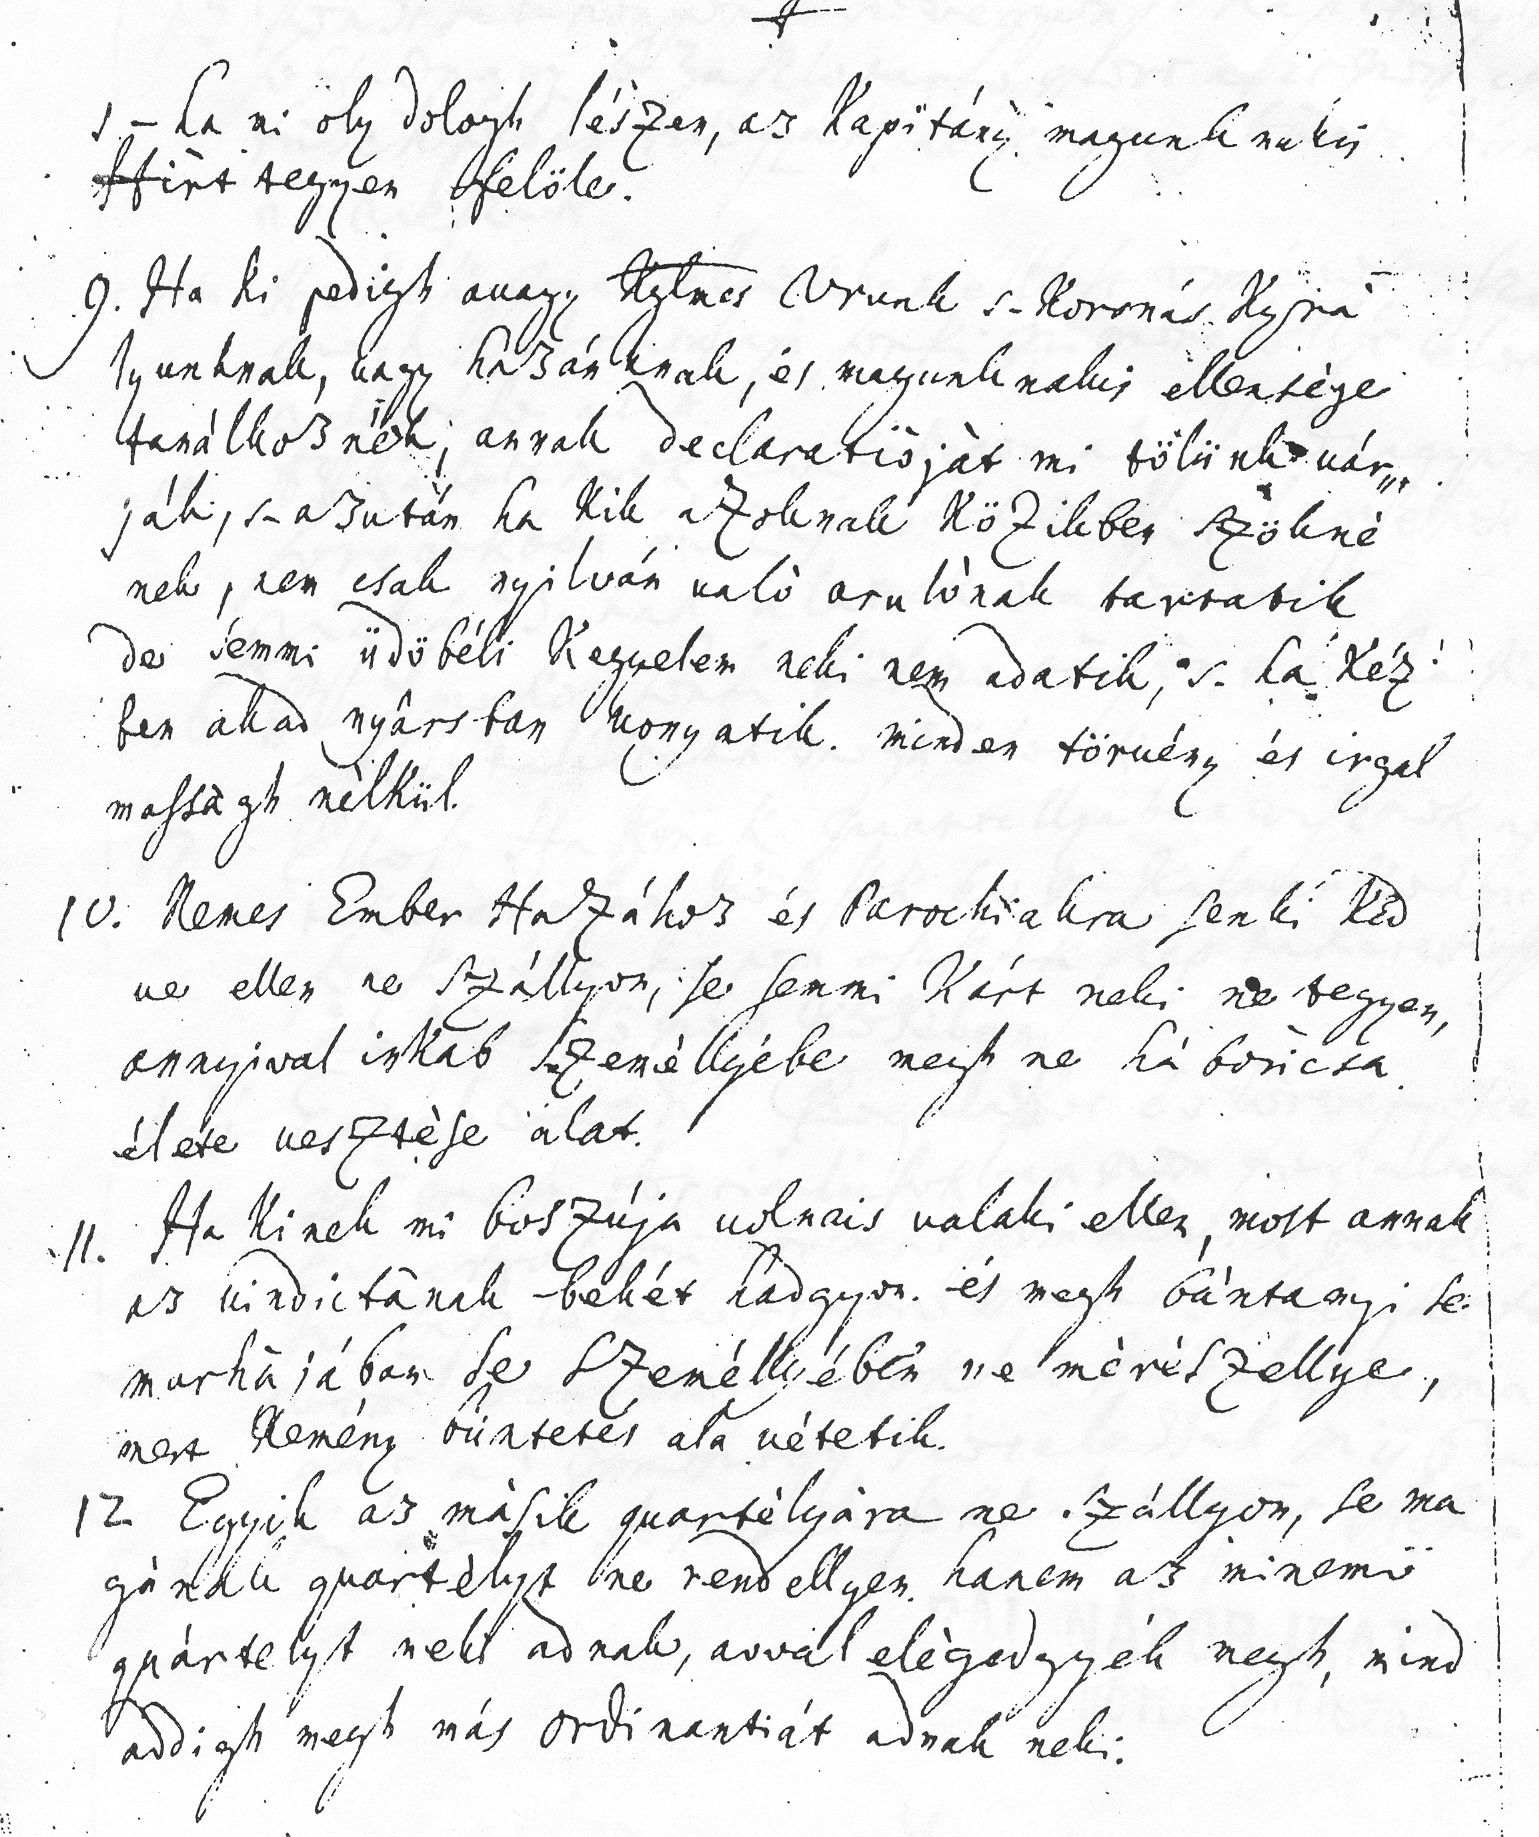 s – ha mi oly dologh lészen, az Kapitány magunknakis
hirt tegyen felöle.
9. Ha ki pedigh avagy Kglmes Urunk s-Koronás Kyrá
lyunknak, vagy hazánknak, és magunknakis ellensége
tanálkoznék, annak declaratiójàt mi tölünk vár„
ják, s-azután ha kik azoknak közikben szökné
nek, nem csak nyilván való arulónak tartatik
de semmi üdöbéli Kegyelem neki nem adatik, s- ha kéz
ben akad nyársban vonyatik. minden törvény és irgal
massàgh nèlkül.
10. Nemes Ember Házához és Parochiakra senki ked
ve ellen ne szállyon, se semmi kárt neki ne tegyen,
annyival inkab személlyébe megh ne háboricsa
élete vesztèse alat.
11. Ha kinek mi boszúja volnais valaki ellen, most annak
az vindictának bekét hadgyon. és megh bántanyi se
marhájában se személlyében ne mèrészellye,
mert kemény büntetés alá vétetik.
12 Egyik az másik quartélyára ne szállyon, se ma
gának quartélyt ne rendellyen. hanem az minemü
quártelyt neki adnak, avval elègedgyék megh, mind
addigh megh más ordinantiát adnak neki.